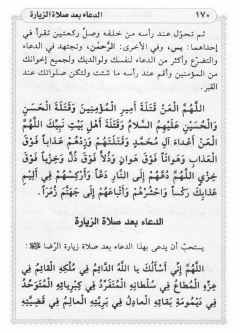 ١٧٠ الدعاء بعد صلاة الزيارة
ثم تحوّل عند رأسه من خلفه وصلّ ركعتين تقرأ في
إحداهما: يس، وفي الأخرى: الرّحمٰن، وتجتهد في الدعاء
والتضرّع وأكثر من الدعاء لنفسك ولوالديك ولجميع إخوانك
من المؤمنين وأقم عند رأسه ما شئت ولتكن صلواتك عند
القبر.
اللَّهُمَّ الْعَنْ قَتَلَةَ أَمِيرِ الْمُؤْمِنِينَ وَقَتَلَةَ الْحَسَنِ
وَالْحُسَيْنِ عَلَيْهِمُ السَّلَامُ وَقَتَلَةَ أَهْلِ بَيْتِ نَبِيِّكَ اللَّهُمَّ
الْعَنْ أَعْدَاءَ آلِ مُحَمَّدٍ وَقَتَلَتَهُمْ وَزِدْهُمْ عَذَاباً فَوْقَ
الْعَذَابِ وَهَوَاناً فَوْقَ هَوَانٍ وَذُلّاً فَوْقَ ذُلٍّ وَخِزْياً فَوْقَ
خِزْيٍ اللَّهُمَّ دُعَّهُمْ إِلَى النَّارِ دَعّاً وَأَرْكِسْهُمْ فِي أَلِيمِ
عَذَابِكَ رَكْساً وَاحْشُرْهُمْ وَأَتْبَاعَهُمْ إِلَى جَهَنَّمَ زُمَراً.
الدعاء بعد صلاة الزيارة
يستحبّ أن يدعى بهذا الدعاء بعد صلاة زيارة الرّضا :
اللَّهُمَّ إِنِّي أَسْأَلُكَ يَا اللَّهُ الدَّائِمُ فِي مُلْكِهِ الْقَائِمُ فِي
عِزِّهِ الْمُطَاعُ فِي سُلْطَانِهِ الْمُتَفَرِّدُ فِي كِبْرِيَائِهِ الْمُتَوَحِّدُ
فِي دَيْمُومَةِ بَقَائِهِ الْعَادِلُ فِي بَرِيَّتِهِ الْعَالِمُ فِي قَضِيَّتِهِ